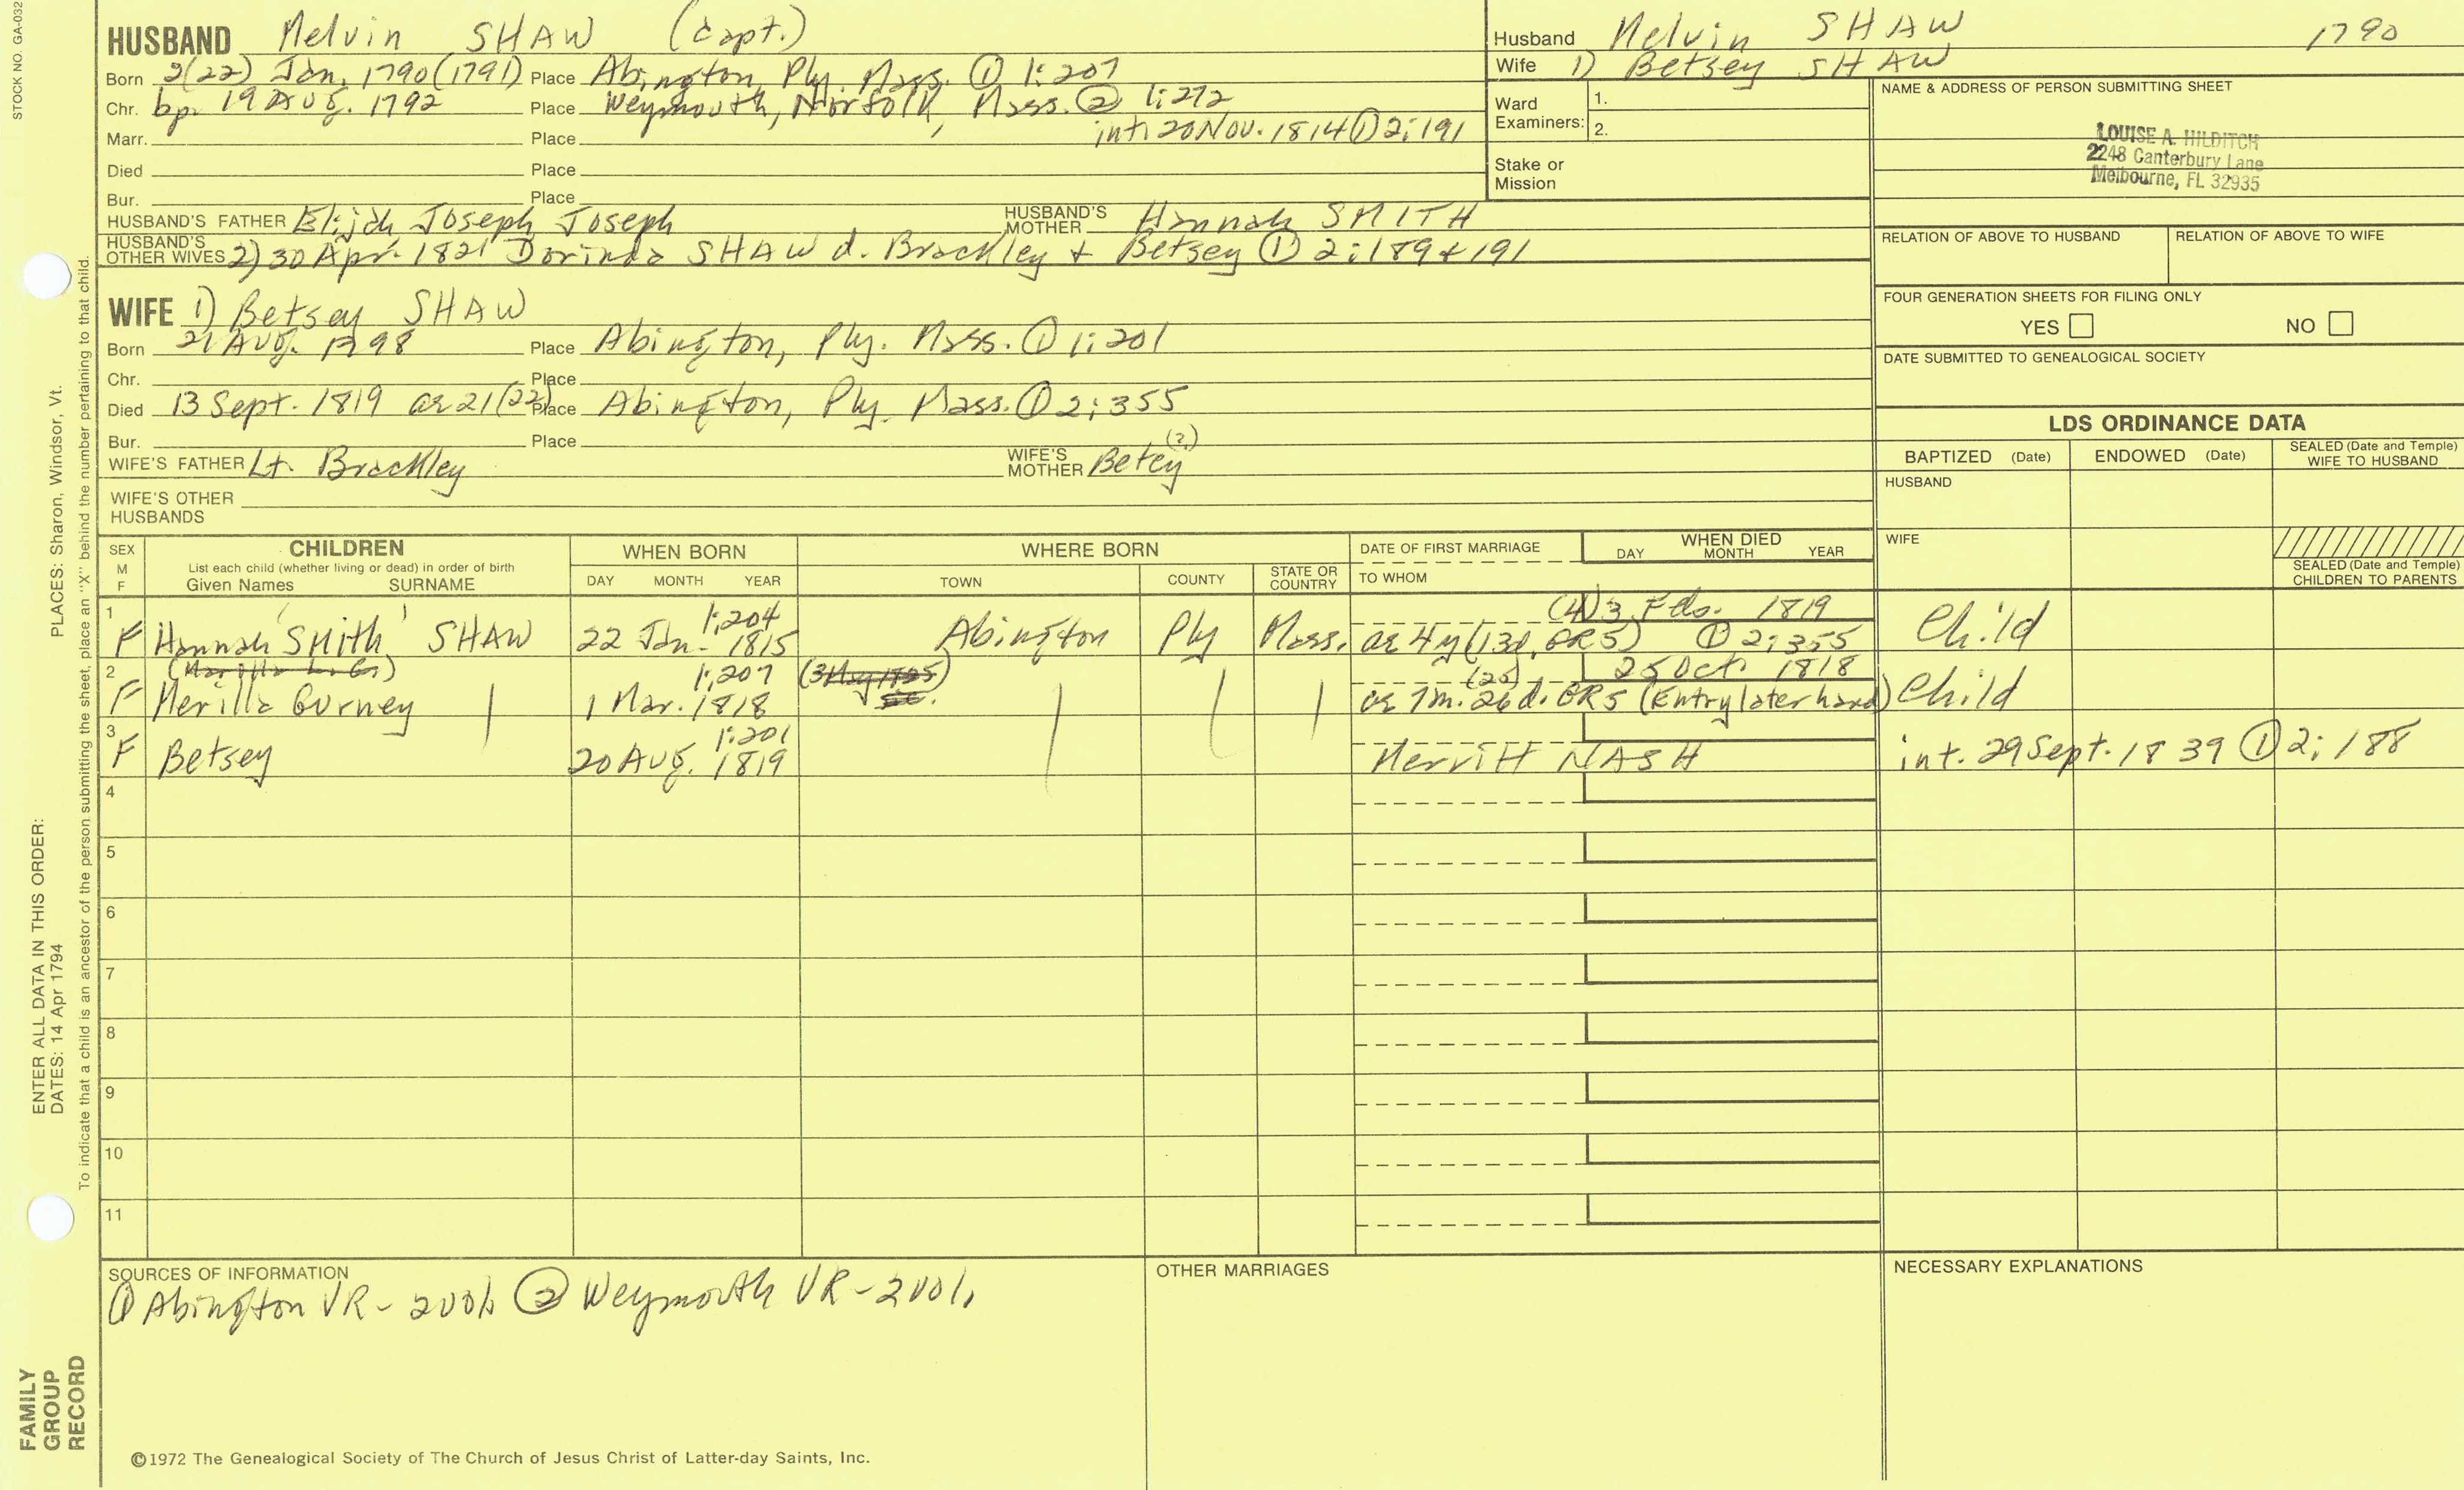 STOCK NO. GA-032
HUSBAND Melvin SHAW (Capt.)
Born 2(22) Jan. 1790 (1791) Place Abington, Ply. Mass. ① 1:207
Chr. bp. 19 Aug. 1792 Place Weymouth, Norfolk, Mass. ② 1:272
Marr. Place int. 20 Nov. 1814 ① 2:191
Died Place
Bur. Place
HUSBAND'S FATHER Elijah Joseph Joseph HUSBAND'S MOTHER Hannah SMITH
HUSBAND'S OTHER WIVES 2) 30 Apr. 1821 Dorinda SHAW d. Brackley + Betsey ① 2:189+191
WIFE 1) Betsey SHAW
Born 21 Aug. 1798 Place Abington, Ply. Mass. ① 1:201
Chr. Place
Died 13 Sept. 1819 ae 21 (22) Place Abington, Ply. Mass. ① 2:355
Bur. Place
WIFE'S FATHER Lt. Brackley WIFE'S MOTHER Betey (2)
WIFE'S OTHER HUSBANDS
Husband Melvin SHAW 1790
Wife 1) Betsey SHAW
Ward Examiners: 1.
2.
Stake or Mission
NAME & ADDRESS OF PERSON SUBMITTING SHEET
LOUISE A. HILDITCH
2248 Canterbury Lane
Melbourne, FL 32935
RELATION OF ABOVE TO HUSBAND RELATION OF ABOVE TO WIFE
FOUR GENERATION SHEETS FOR FILING ONLY
YES NO
DATE SUBMITTED TO GENEALOGICAL SOCIETY
LDS ORDINANCE DATA
BAPTIZED (Date) ENDOWED (Date) SEALED (Date and Temple) WIFE TO HUSBAND
HUSBAND
WIFE
SEALED (Date and Temple) CHILDREN TO PARENTS
SEX M F
CHILDREN
List each child (whether living or dead) in order of birth
Given Names SURNAME
WHEN BORN
DAY MONTH YEAR
WHERE BORN
TOWN COUNTY STATE OR COUNTRY
DATE OF FIRST MARRIAGE
TO WHOM
WHEN DIED
DAY MONTH YEAR
1 1:204 (4) 3 Feb. 1819
F Hannah 'Smith' SHAW 22 Jan. 1815 Abington Ply Mass. ae 4 y (13d, GR5) ① 2:355 Child
2 1:207 (25) 25 Oct. 1818
F Merilla Gurney 1 Mar. 1818 ae 7m. 26 d. GR5 (Entry later hand) Child
3 1:201
F Betsey 20 Aug. 1819 Merritt NASH int. 29 Sept. 1839 ① 2:188
4
5
6
7
8
9
10
11
SOURCES OF INFORMATION
① Abington VR - 2 vol. ② Weymouth VR - 2 vol.
OTHER MARRIAGES
NECESSARY EXPLANATIONS
©1972 The Genealogical Society of The Church of Jesus Christ of Latter-day Saints, Inc.
FAMILY GROUP RECORD
ENTER ALL DATA IN THIS ORDER:
DATES: 14 Apr 1794
PLACES: Sharon, Windsor, Vt.
To indicate that a child is an ancestor of the person submitting the sheet, place an "X" behind the number pertaining to that child.